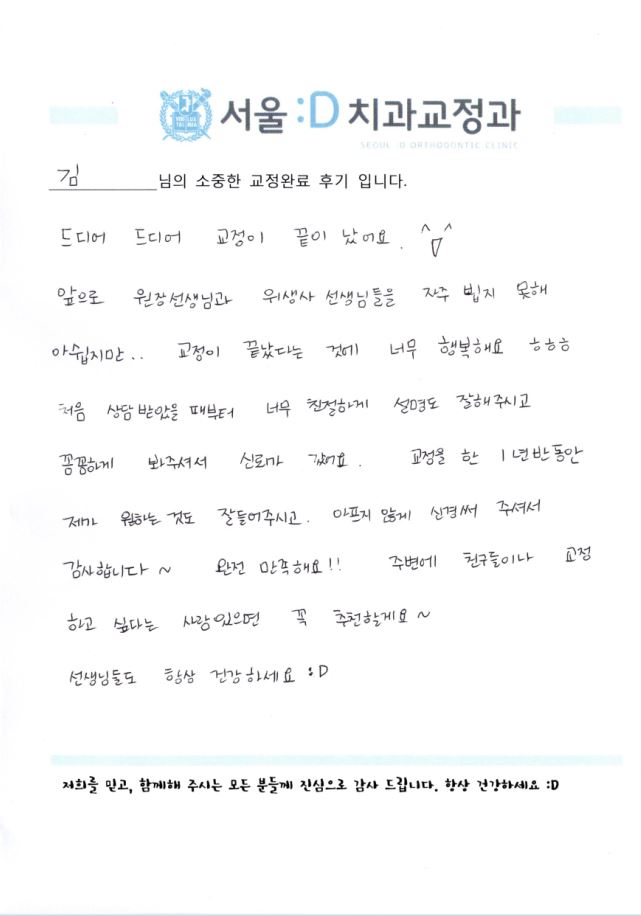 서울 :D 치과교정과
SEOUL :D ORTHODONTIC CLINIC
김 님의 소중한 교정완료 후기 입니다.
드디어 드디어 교정이 끝이 났어요. ^▽^
앞으로 원장선생님과 위생사 선생님들을 자주 뵙지 못해
아쉽지만.. 교정이 끝났다는 것에 너무 행복해요 ㅎㅎㅎ
처음 상담 받았을 때부터 너무 친절하게 설명도 잘해주시고
꼼꼼하게 봐주셔서 신뢰가 갔어요. 교정을 한 1년반동안
제가 원하는 것도 잘들어주시고. 아프지 않게 신경써 주셔서
감사합니다 ~ 완전 만족해요!! 주변에 친구들이나 교정
하고 싶다는 사람있으면 꼭 추천할게요~
선생님들도 항상 건강하세요 :D
저희를 믿고, 함께해 주시는 모든 분들께 진심으로 감사 드립니다. 항상 건강하세요 :D